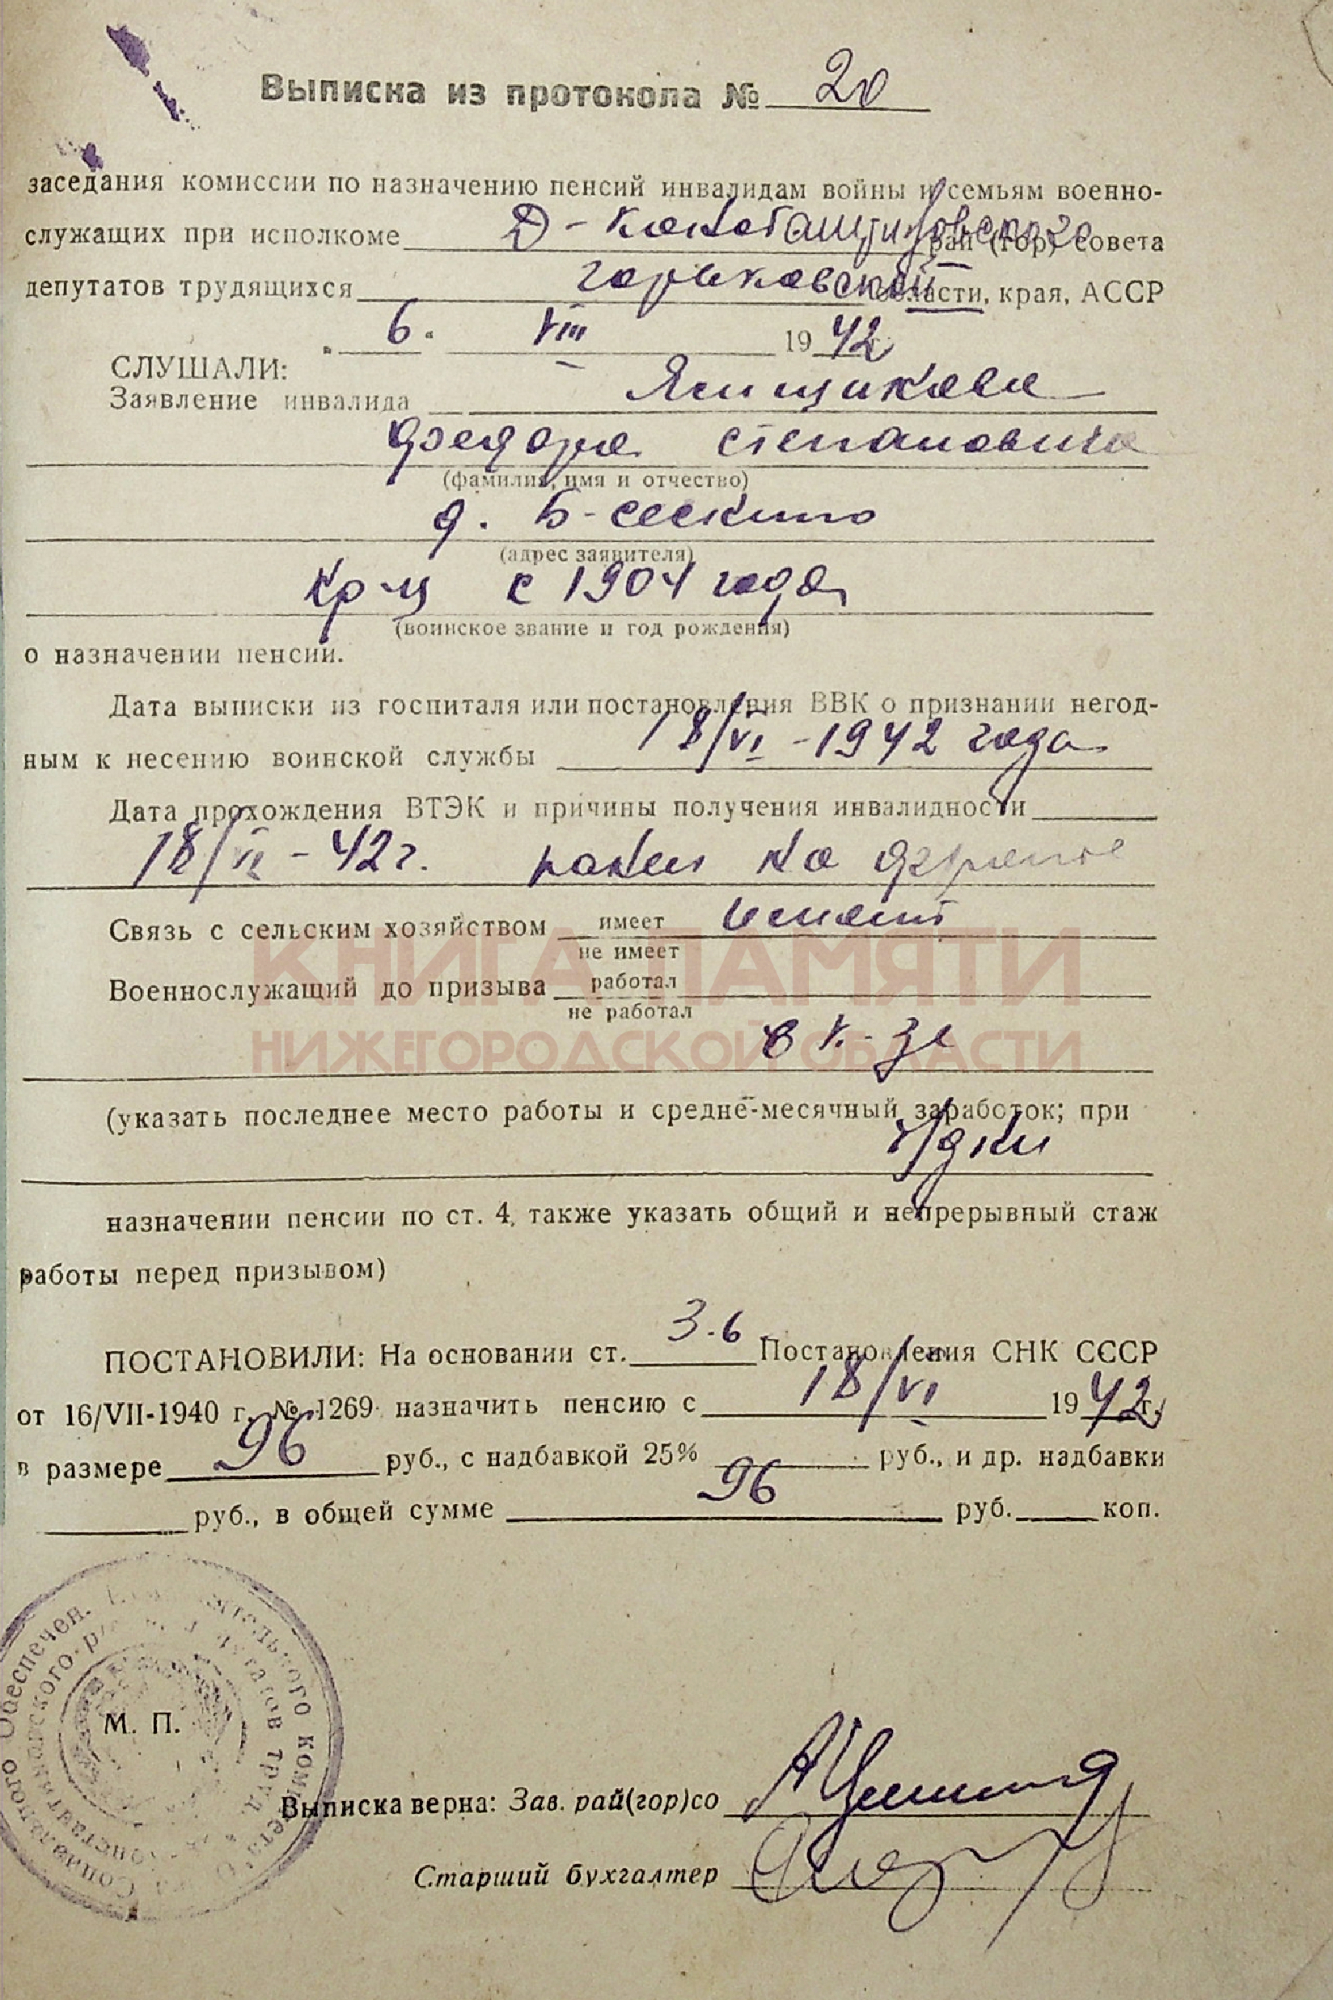 Выписка из протокола № 20
заседания комиссии по назначению пенсий инвалидам войны и семьям военно-
служащих при исполкоме Д-Константиновского рай (гор) совета
депутатов трудящихся Горьковской области, края, АССР
" 6 " VIII 1942
СЛУШАЛИ:
Заявление инвалида Ямщикова
Федора Степановича
(фамилия, имя и отчество)
д. Б-Сескино
(адрес заявителя)
Кр-ц с 1904 года
(воинское звание и год рождения)
о назначении пенсии.
Дата выписки из госпиталя или постановления ВВК о признании негод-
ным к несению воинской службы 18/VI-1942 года
Дата прохождения ВТЭК и причины получения инвалидности
18/VI-42 г. ранен на фронте
Связь с сельским хозяйством имеет имеет
не имеет
Военнослужащий до призыва работал
не работал
КНИГА ПАМЯТИ
НИЖЕГОРОДСКОЙ ОБЛАСТИ
в к-зе
(указать последнее место работы и средне-месячный заработок; при
т/дни
назначении пенсии по ст. 4, также указать общий и непрерывный стаж
работы перед призывом)
ПОСТАНОВИЛИ: На основании ст. 3-б Постановления СНК СССР
от 16/VII-1940 г. № 1269 назначить пенсию с 18/VI 1942 г.
в размере 96 руб., с надбавкой 25% руб., и др. надбавки
руб., в общей сумме 96 руб. коп.
Социального Обеспечен.
М. П.
Выписка верна: Зав. рай(гор)со
Старший бухгалтер